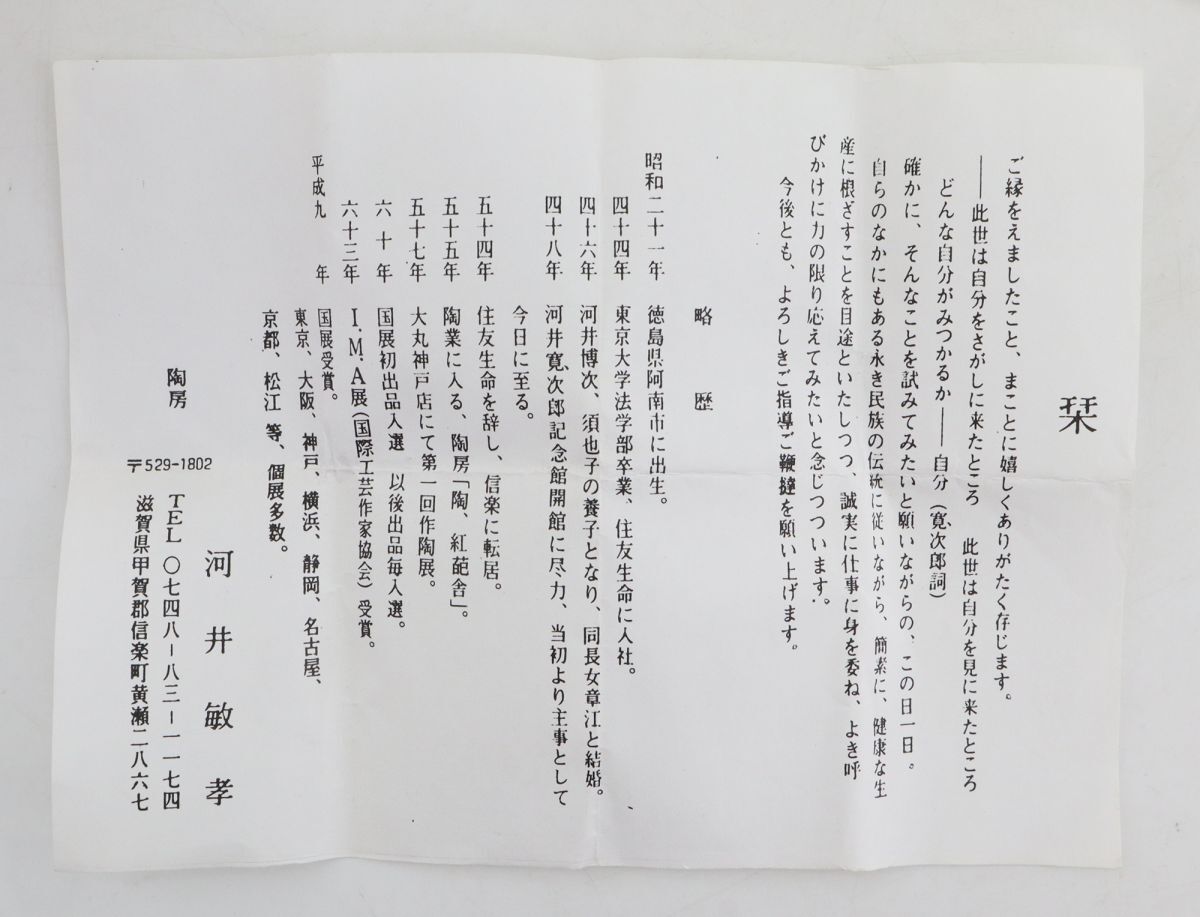 栞
ご縁をえましたこと、まことに嬉しくありがたく存じます。
――此世は自分をさがしに来たところ　此世は自分を見に来たところ
どんな自分がみつかるか――自分（寛次郎詞）
確かに、そんなことを試みてみたいと願いながらの、この日一日。
自らのなかにもある永き民族の伝統に従いながら、簡素に、健康な生
産に根ざすことを目途といたしつつ、誠実に仕事に身を委ね、よき呼
びかけに力の限り応えてみたいと念じつついます。
今後とも、よろしきご指導ご鞭撻を願い上げます。
略　歴
昭和二十一年　徳島県阿南市に出生。
四十四年　東京大学法学部卒業、住友生命に入社。
四十六年　河井博次、須也子の養子となり、同長女章江と結婚。
四十八年　河井寛次郎記念館開館に尽力、当初より主事として
今日に至る。
五十四年　住友生命を辞し、信楽に転居。
五十五年　陶業に入る、陶房「陶、紅葩舎」。
五十七年　大丸神戸店にて第一回作陶展。
六十年　国展初出品入選　以後出品毎入選。
六十三年　I.M.A展（国際工芸作家協会）受賞。
平成九年　国展受賞。
東京、大阪、神戸、横浜、静岡、名古屋、
京都、松江 等、個展多数。
河井敏孝
陶房
〒529-1802
TEL 〇七四八－八三－一一七四
滋賀県甲賀郡信楽町黄瀬二八六七